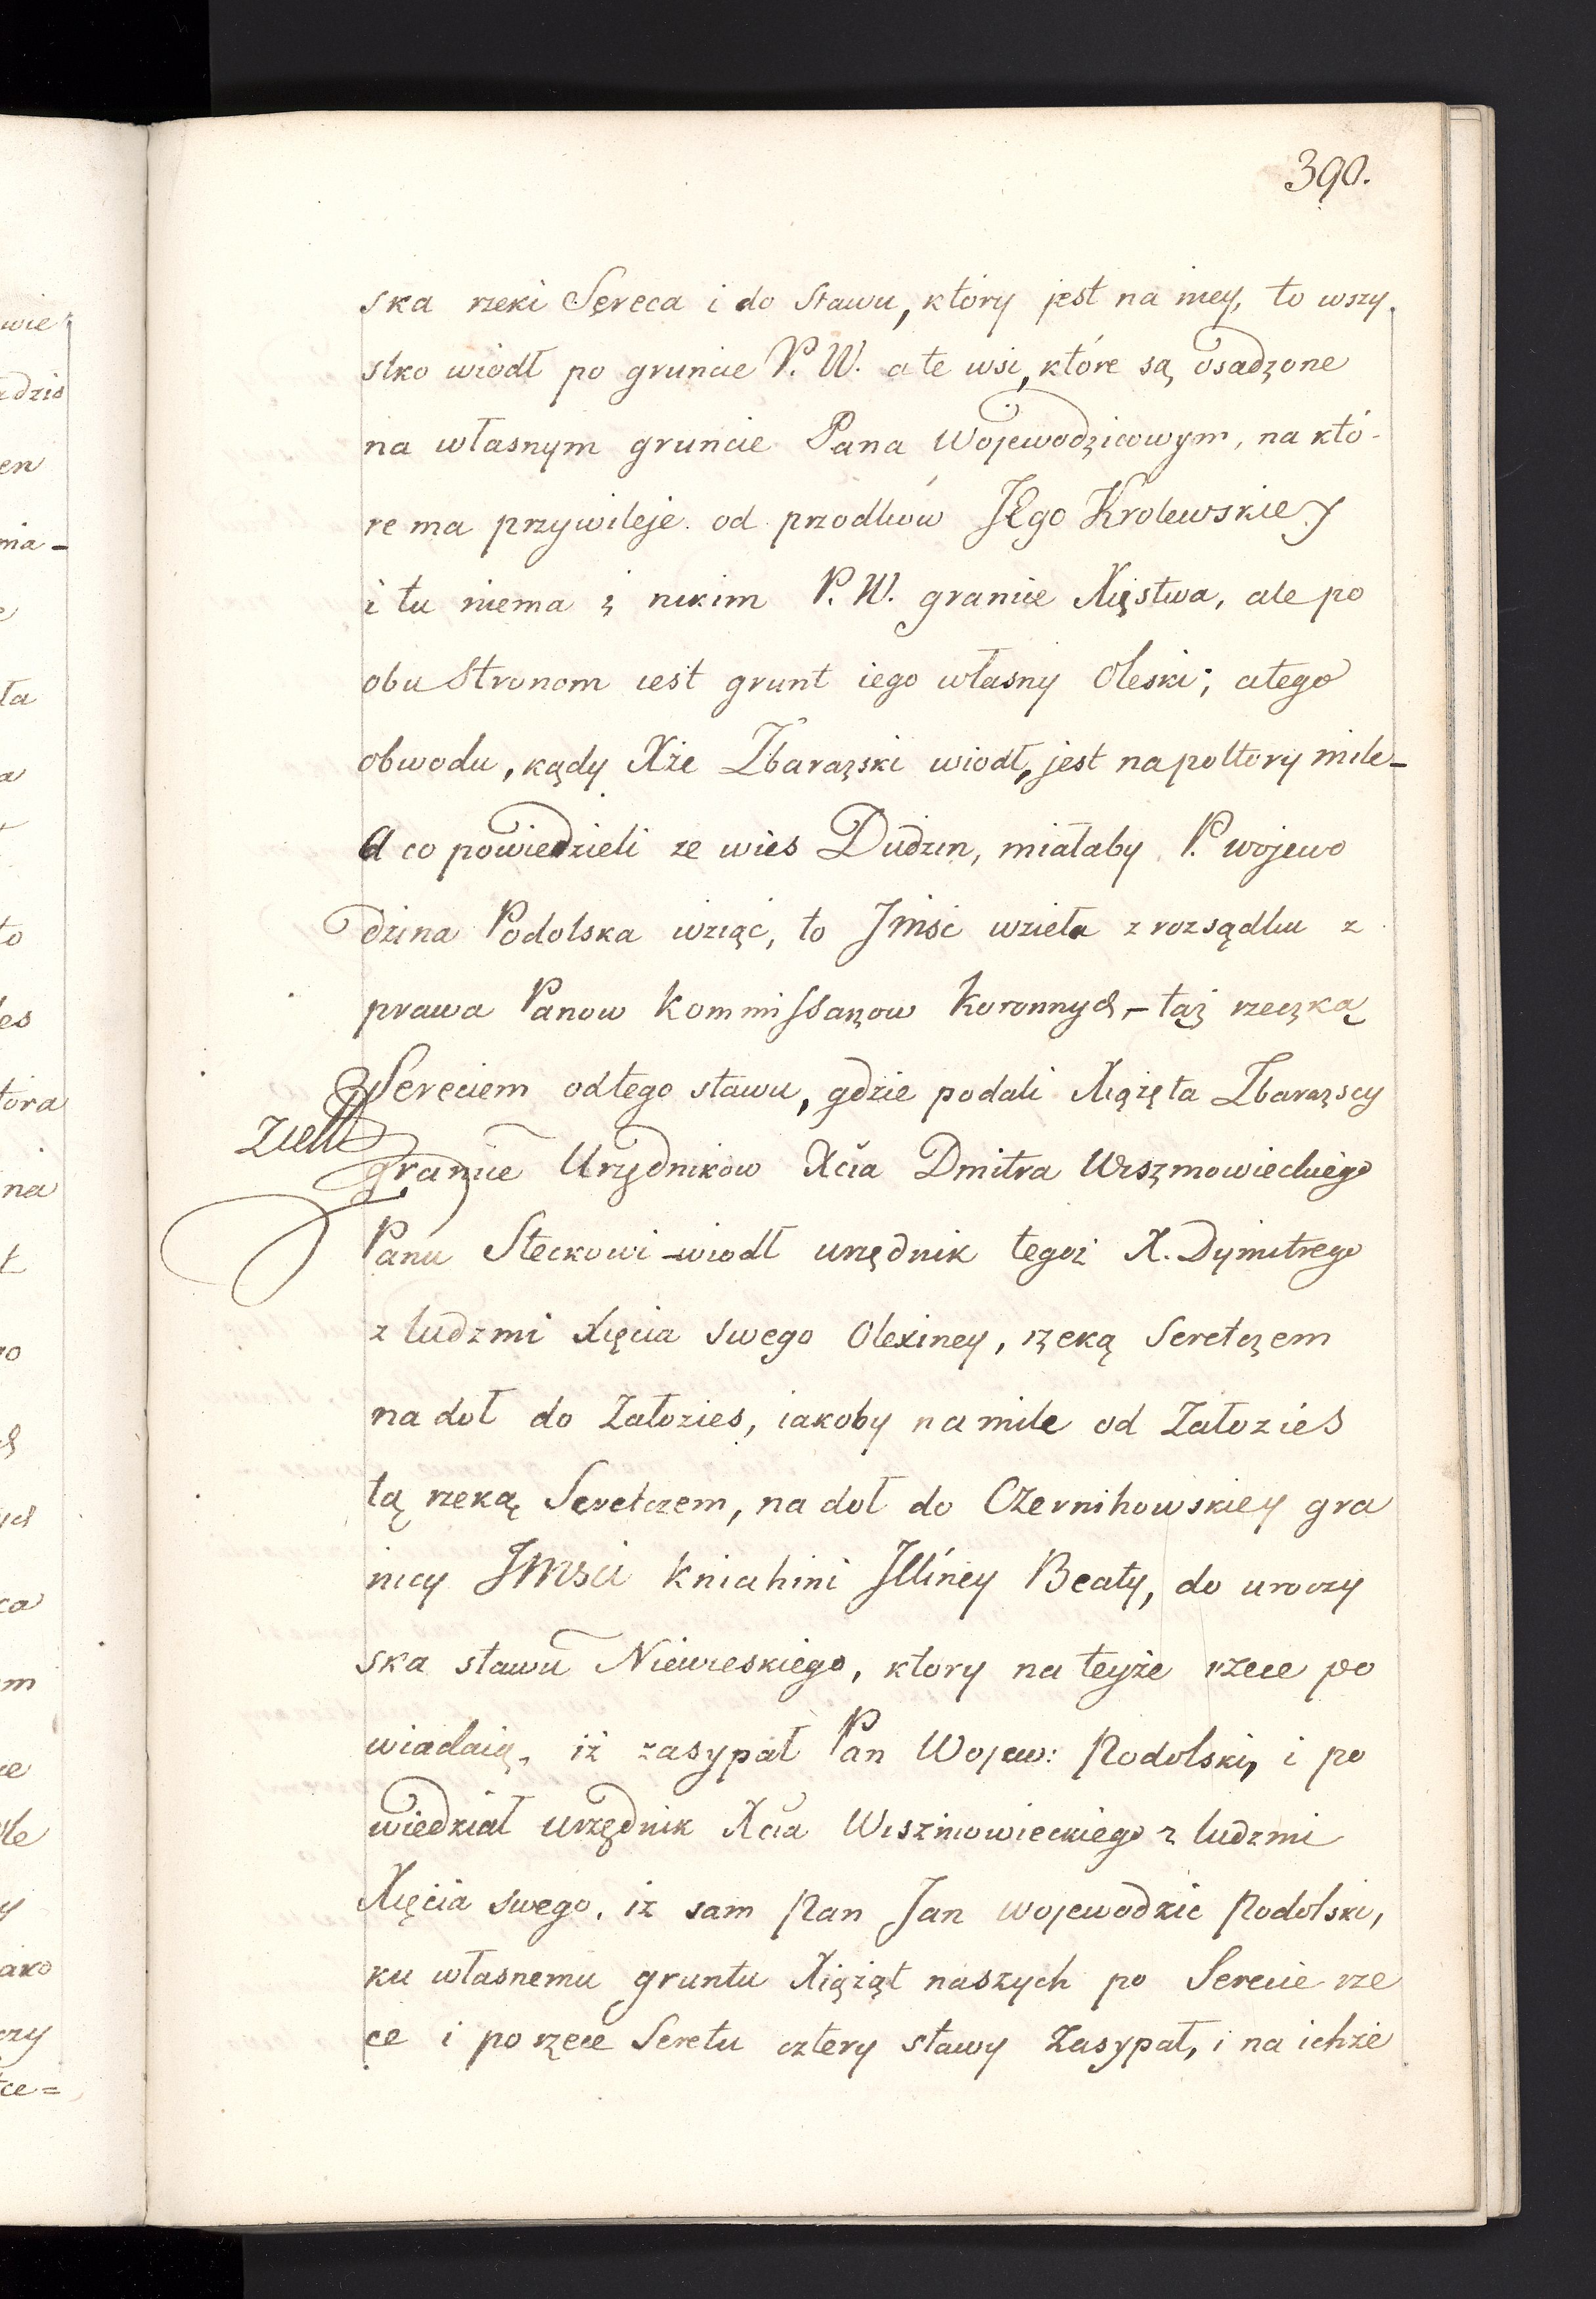 390.
ska rzeki Sereca i do Stawu, który jest na niey, to wszy.
stko wiodł po gruncie P. W. a te wsi, które są osadzone
na własnym gruncie Pana Wojewodzicowym, na któ-
re ma przywileje od przodków JEgo Krolewskiey
i tu niema z nikim P. W. granice Xięstwa, ale po
obu Stronom iest grunt iego własny Oleski; a tego
obwodu, kądy Xże Zbarazski wiodł, jest na poltory mile_
A co powiedzieli ze wies Dudzin, miałaby P. wojewo
dzina Podolska wziąć, to Jmść wzieła z rozsądku z
prawa Panow Kommissarzow Koronnych, – tąż rzeczką
Sereciem od tego stawu, gdzie podali Xiążęta Zbarazscy
granice Urzędnikow Xcia Dmitra Wiszniowieckiego
Panu Steckowi – wiodł urzędnik tegoż X. Dymitrego
z ludzmi Xięcia swego Olexiney, rzeką Seretczem
na doł do Załozies, iakoby na mile od Załozies
tą rzeką Seretczem, na doł do Czernihowskiey gra
nicy JMsci Kniahini Illiney Beaty, do uroczy
ska stawu Niewieskiego, ktory na teyże rzece po
wiadaią, iż zasypał Pan Wojew: Podolski, i po
wiedział urzędnik Xcia Wiszniowieckiego z ludzmi
Xięcia swego, iz sam Pan Jan wojewodzic Podolski,
ku własnemu gruntu Xiążąt naszych po Serecie rze
ce i po rzece Seretu cztery stawy zasypał, i na ichże